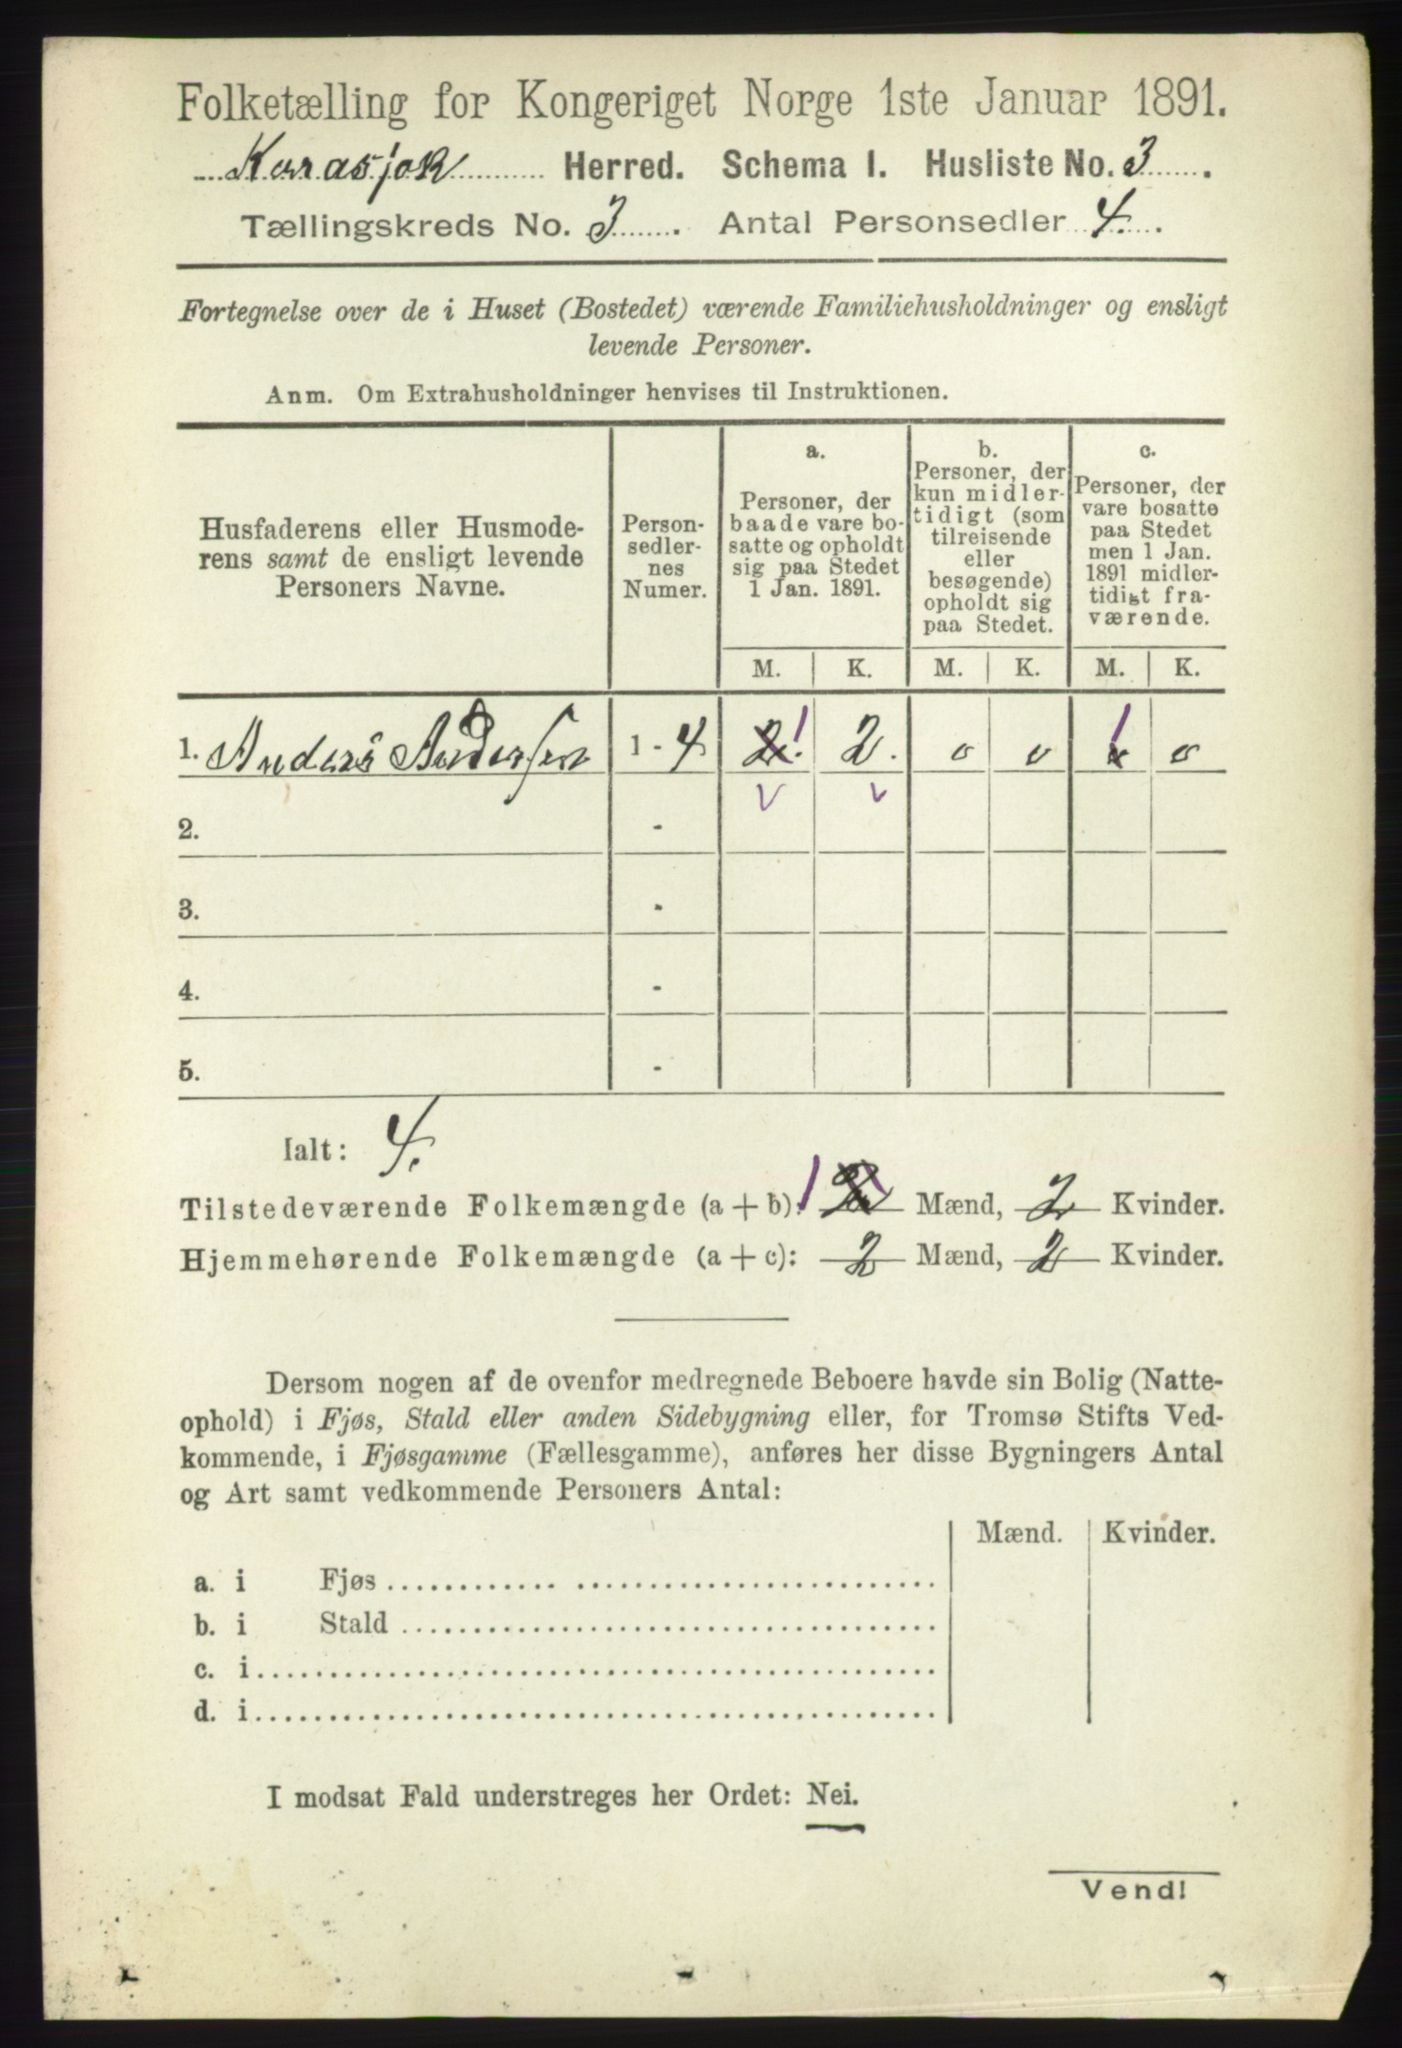 Folketælling for Kongeriget Norge 1ste Januar 1891.
Karasjok Herred. Schema I. Husliste No. 3.
Tællingskreds No. 3. Antal Personsedler 4.
Fortegnelse over de i Huset (Bostedet) værende Familiehusholdninger og ensligt
levende Personer.
Anm. Om Extrahusholdninger henvises til Instruktionen.
Husfaderens eller Husmode-
rens samt de ensligt levende
Personers Navne.
Person-
sedler-
nes
Numer.
a.
Personer, der
baade vare bo-
satte og opholdt
sig paa Stedet
1 Jan. 1891.
b.
Personer, der
kun midler-
tidigt (som
tilreisende
eller
besøgende)
opholdt sig
paa Stedet.
c.
Personer, der
vare bosatte
paa Stedet
men 1 Jan.
1891 midler-
tidigt fra-
værende.
M. K. M. K. M. K.
1. Anders Andersen 1 - 4 2. 1 2. 0 0 1 0
2. -
3. -
4. -
5. -
Ialt: 4.
Tilstedeværende Folkemængde (a + b): 1 2 Mænd, 2 Kvinder.
Hjemmehørende Folkemængde (a + c): 2 Mænd, 2 Kvinder.
Dersom nogen af de ovenfor medregnede Beboere havde sin Bolig (Natte-
ophold) i Fjøs, Stald eller anden Sidebygning eller, for Tromsø Stifts Ved-
kommende, i Fjøsgamme (Fællesgamme), anføres her disse Bygningers Antal
og Art samt vedkommende Personers Antal:
Mænd. Kvinder.
a. i Fjøs
b. i Stald
c. i
d. i
I modsat Fald understreges her Ordet: Nei.
Vend!